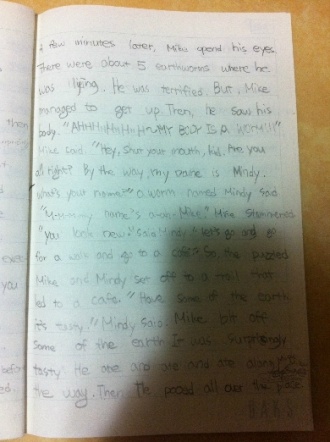 A few minutes later, Mike opend his eyes.
There were about 5 earthworms where he
was lying. He was terrified. But, Mike
managed to get up. Then, he saw his
body. "AHHHHHHHHH MY BODY IS A WORM!!!"
Mike said. "Hey, Shut your mouth, kid. Are you
all right? By the way, my name is Mindy.
what's your name?" a worm named Mindy said.
"M-m-my name's Mike." Mike
"You look new." said Mindy. "Let's go and go
for a walk and go to a cafe? So, the puzzled
Mike and Mindy set off to a trail that
led to a cafe. "Have some of the earth
it's tasty." Mindy said. Mike bit off
some of the earth. It was surprisingly
tasty. He ate and ate and ate
the way. Then, He pooed all over the place